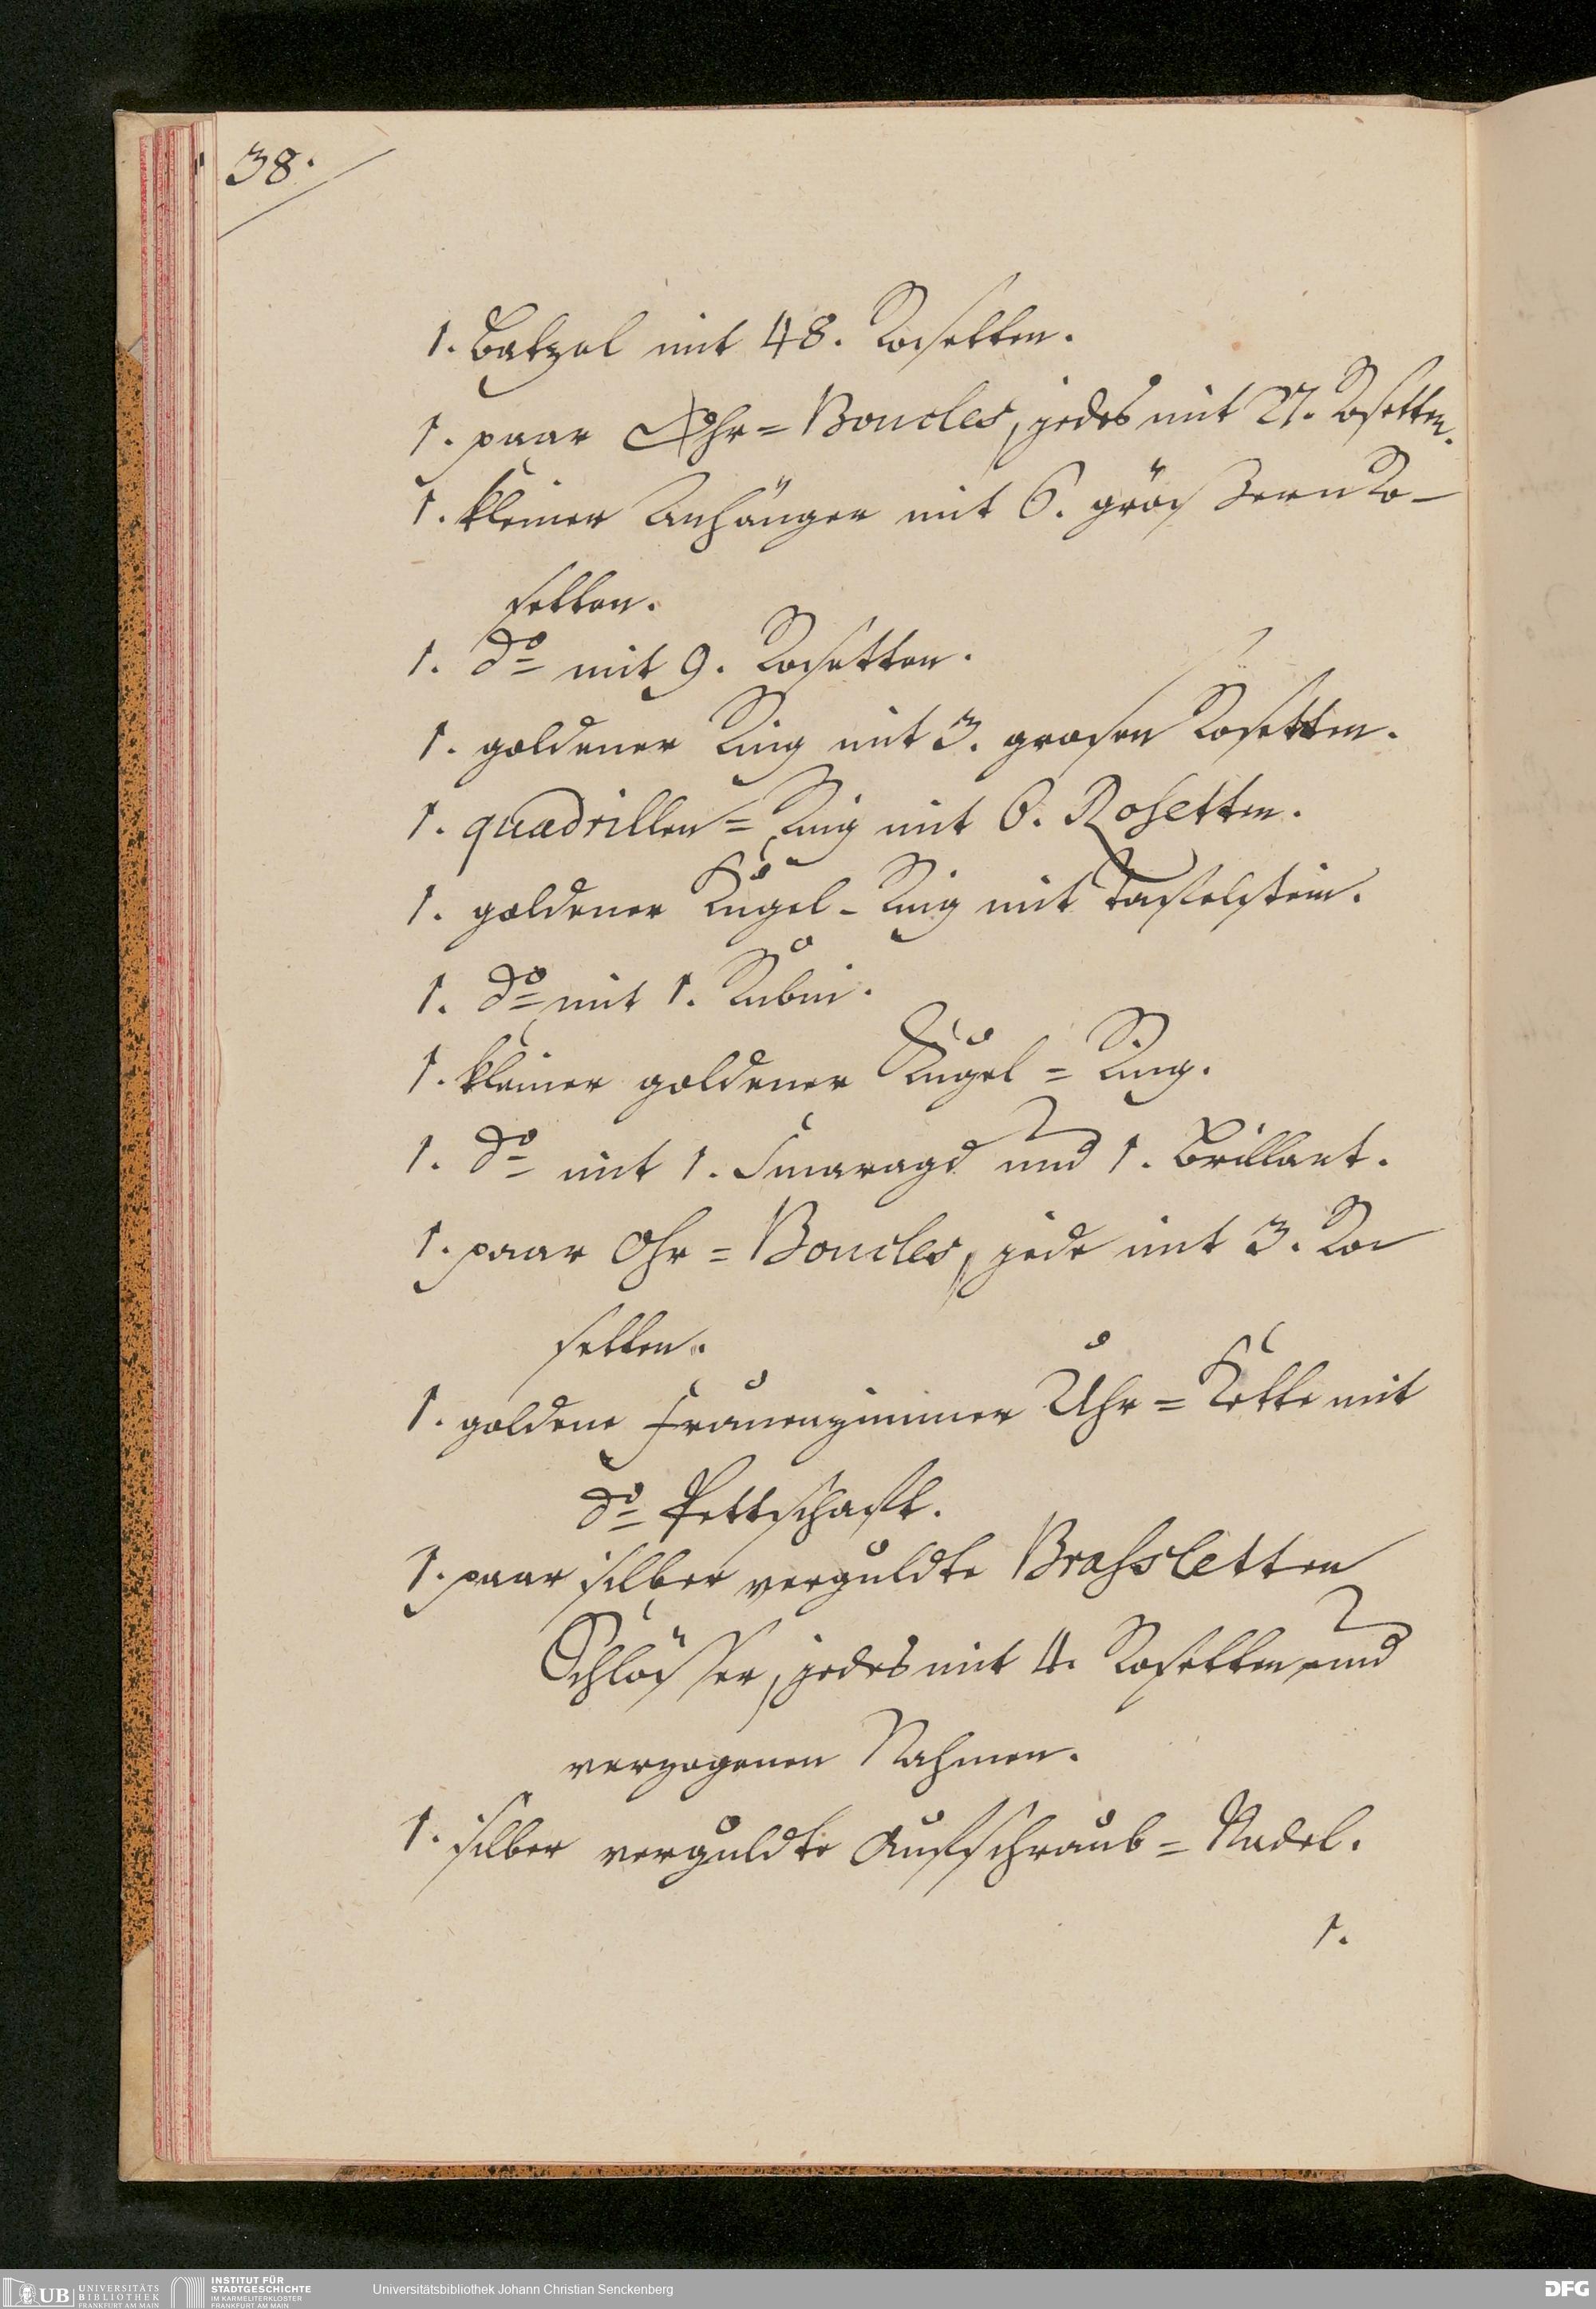 38.
1. Batzel mit 48. Rosetten.
1. paar Ohr=Boucles, jedes mit 27. Rosetten.
1. kleiner Anhänger mit 6. größern Ro-
setten.
1. do mit 9. Rosetten.
1. goldener Ring mit 3. grosen Rosetten.
1. quadrillen=Ring mit 6. Rosetten.
1. goldener Kugel-Ring mit Tafelstein.
1. do mit 1. Rubin.
1. kleiner goldener Kugel=Ring.
1. do mit 1. Smaragd und 1. Brillant.
1. paar Ohr=Boucles, jede mit 3. Ro
setten.
1. goldene Frauenzimmer Uhr=Kette mit
do Pettschaft.
1. paar silber verguldte Brassletten
Schlösser, jedes mit 4. Rosetten und
verzogenen Nahmen.
1. silber verguldte Aufschraub=Nadel.
1.
UB UNIVERSITÄTS
BIBLIOTHEK
FRANKFURT AM MAIN
INSTITUT FÜR
STADTGESCHICHTE
IM KARMELITERKLOSTER
FRANKFURT AM MAIN
Universitätsbibliothek Johann Christian Senckenberg
DFG